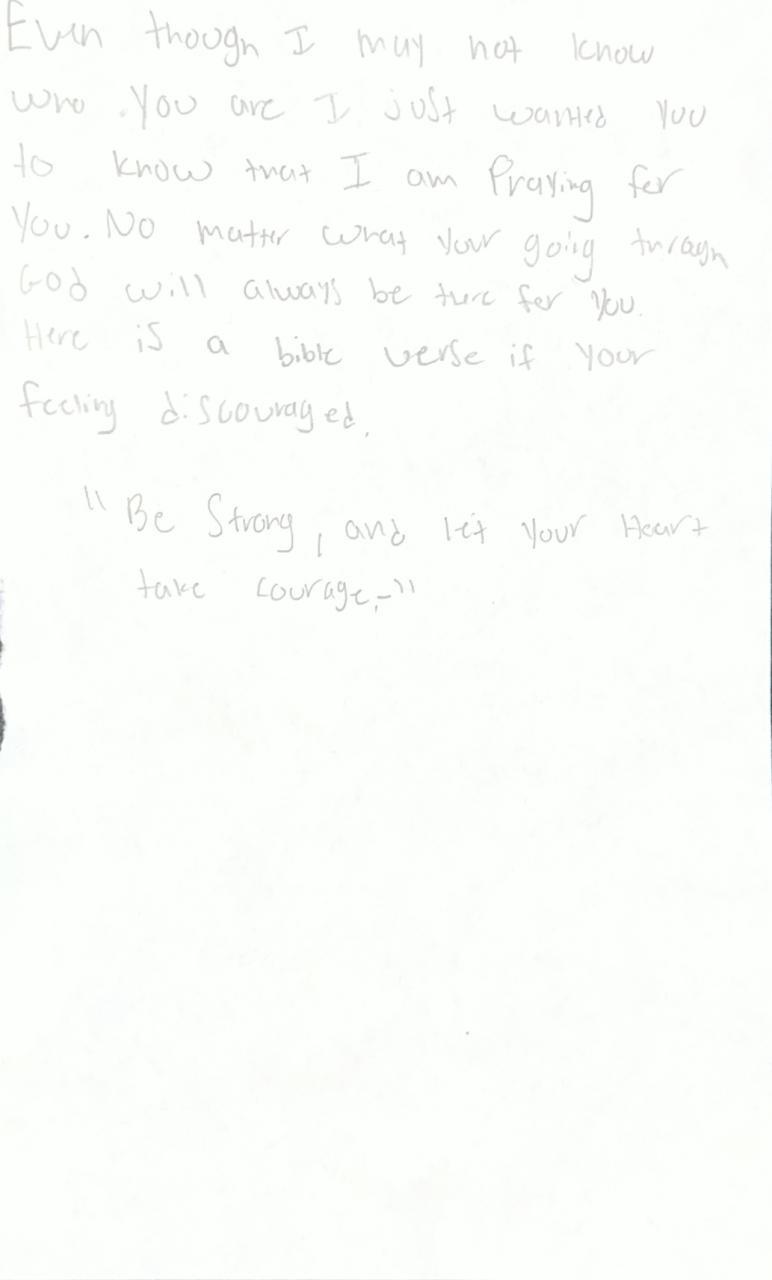 Even though I may not know
who you are I just wanted you
to know that I am Praying for
You. No matter what your going through
God will always be there for you.
Here is a bible verse if your
feeling discouraged.
"Be Strong, and let your Heart
take courage."